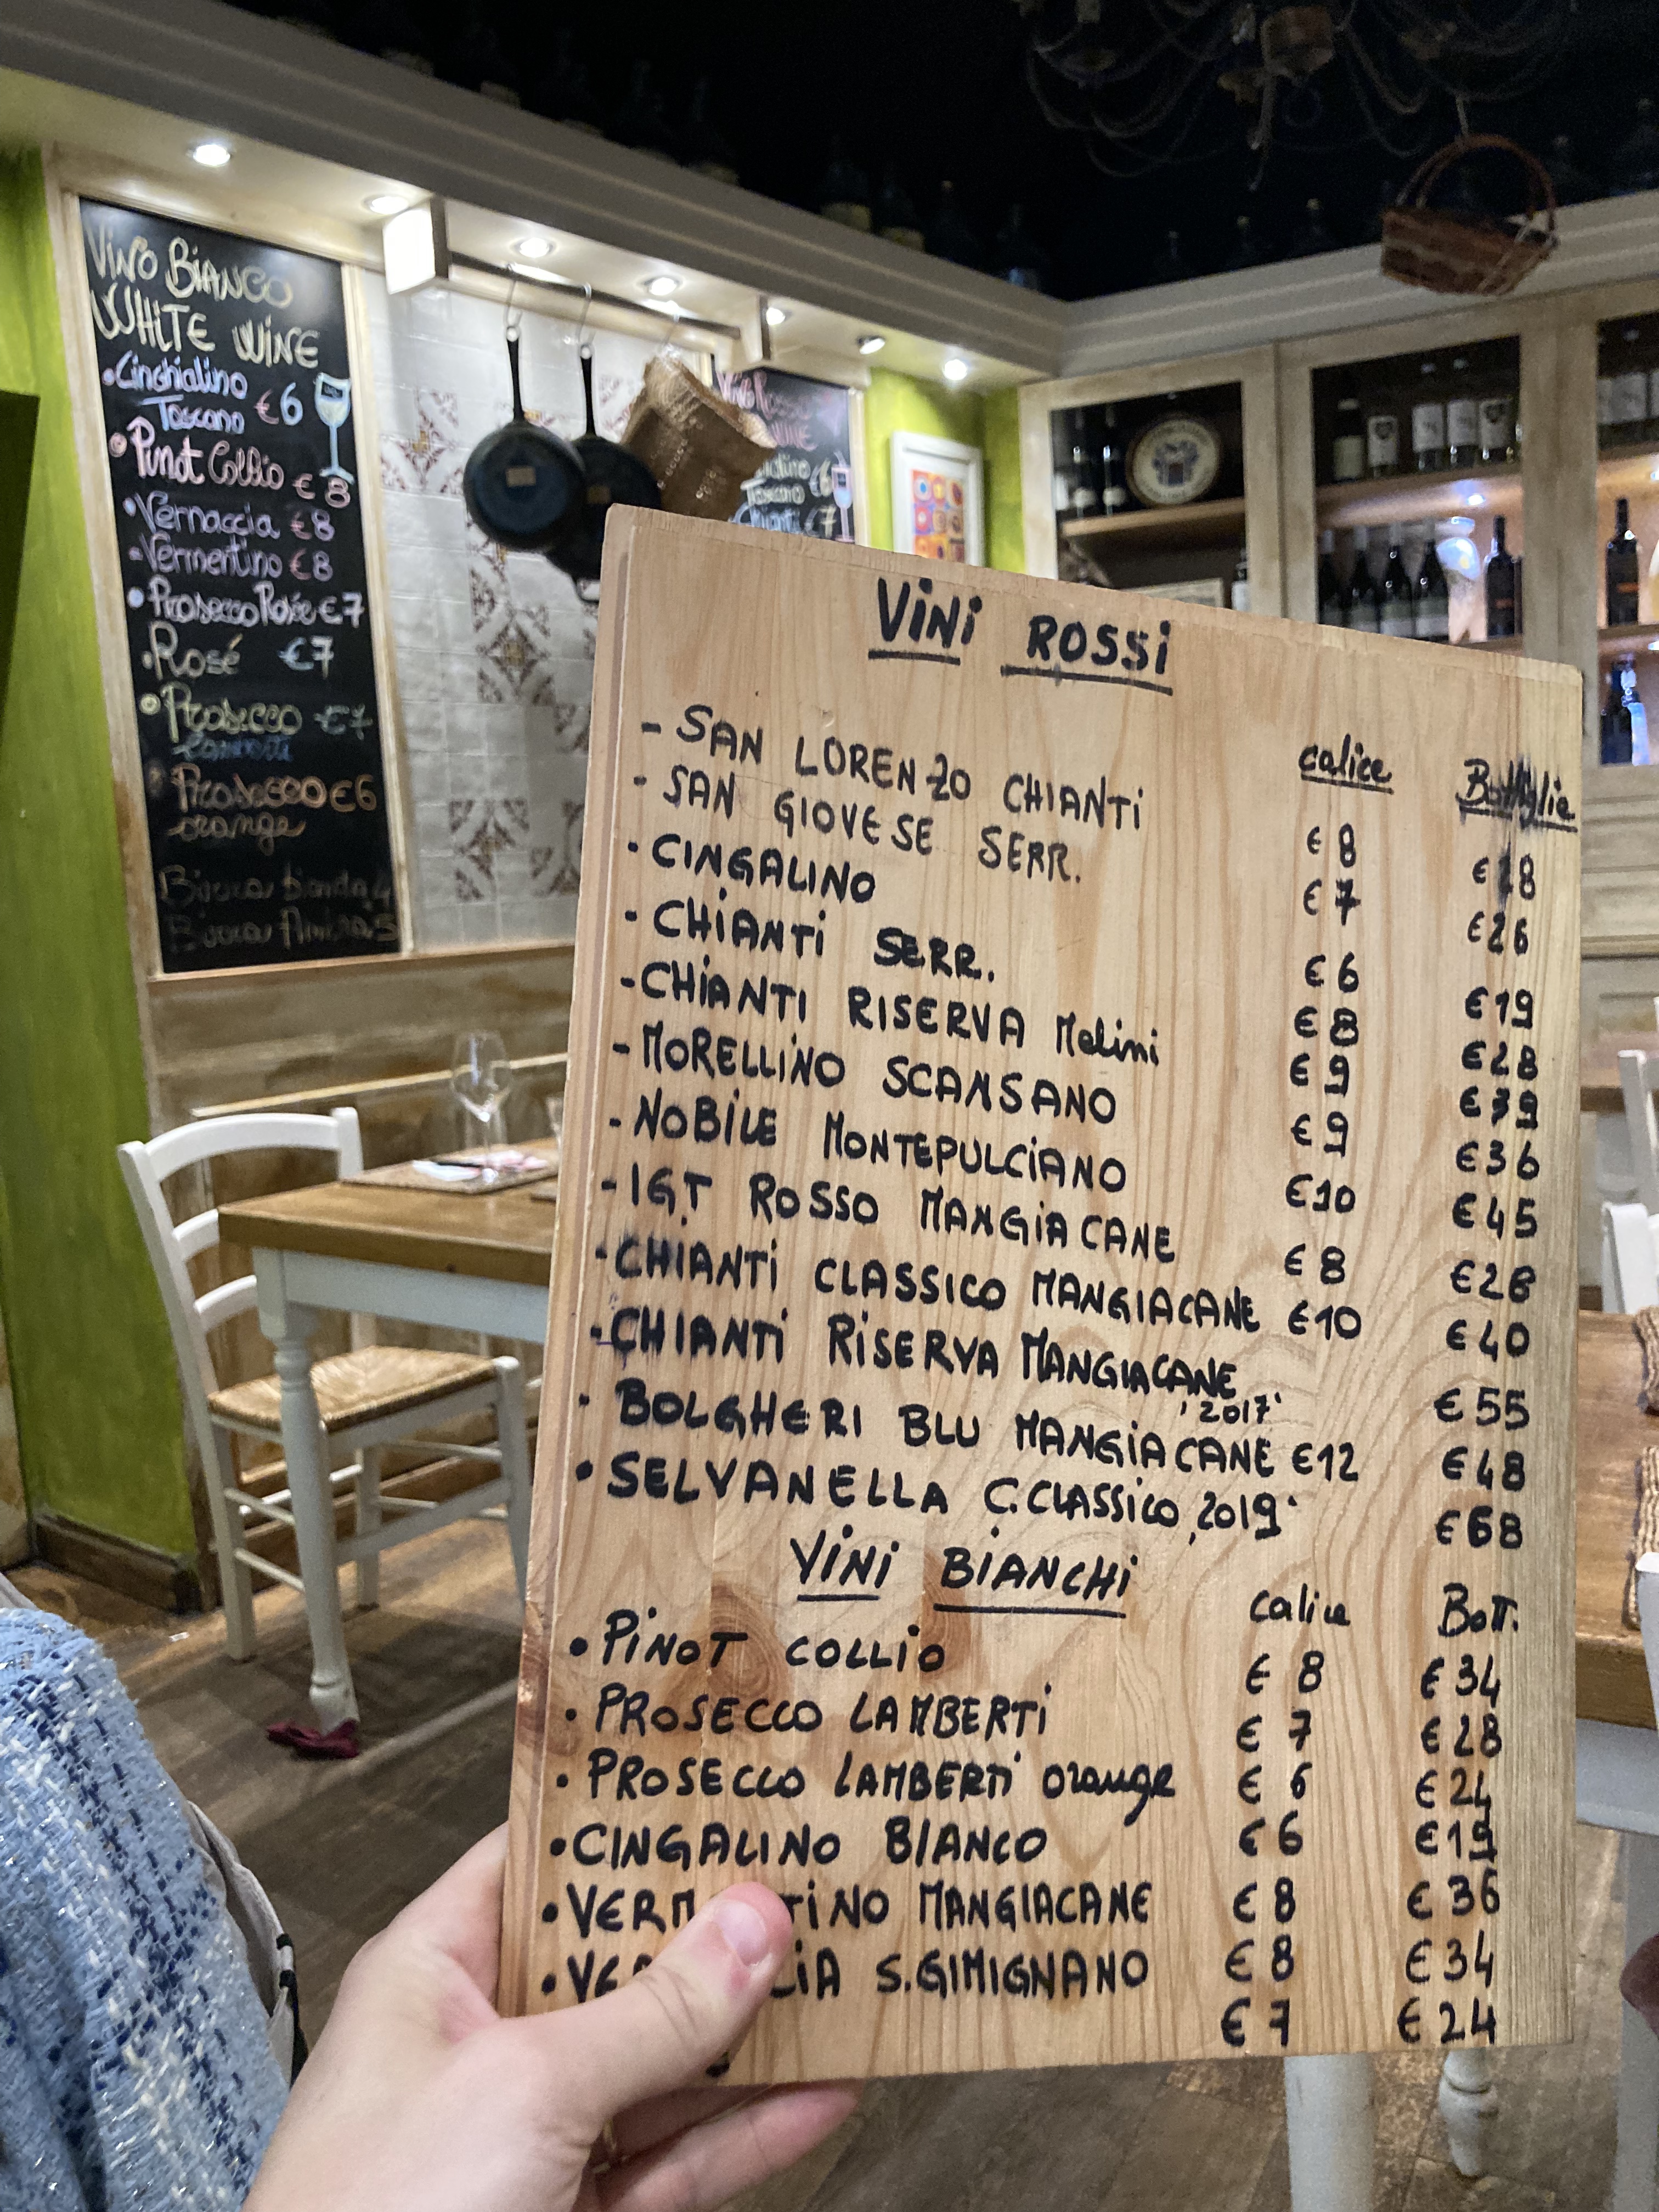 VINO BIANCO
WHITE WINE
•Cinghialino
Toscano €6
•Pinot Collio € 8
•Vernaccia €8
-Vermentino €8
•Prosecco Rosée €7
•Rosé €7
•Prosecco €7
Prosecco €6
orange
Toscano €6
Chianti €7
VINI ROSSI
calice Bottiglie
- SAN LORENZO CHIANTI € 8
- SAN GIOVESE SERR. € 7 €26
• CINGALINO € 6 €19
• CHIANTI SERR. €8 €28
-CHIANTI RISERVA Melini €9 €39
-MORELLINO SCANSANO €9 €36
-NOBILE MONTEPULCIANO €10 €45
-IGT ROSSO MANGIACANE €8
-CHIANTI CLASSICO MANGIACANE €10 €40
-CHIANTI RISERVA MANGIACANE €55
'2017'
• BOLGHERI BLU MANGIACANE €12 €48
• SELVANELLA C.CLASSICO '2019' €68
VINI BIANCHI
calice Bott.
• PINOT COLLIO € 8 €34
• PROSECCO LAMBERTI € 7 €28
• PROSECCO LAMBERTI orange € 6 €24
•CINGALINO BIANCO €6 €19
• MANGIACANE €8 €36
• S.GIMIGNANO €8 €34
€7 €24